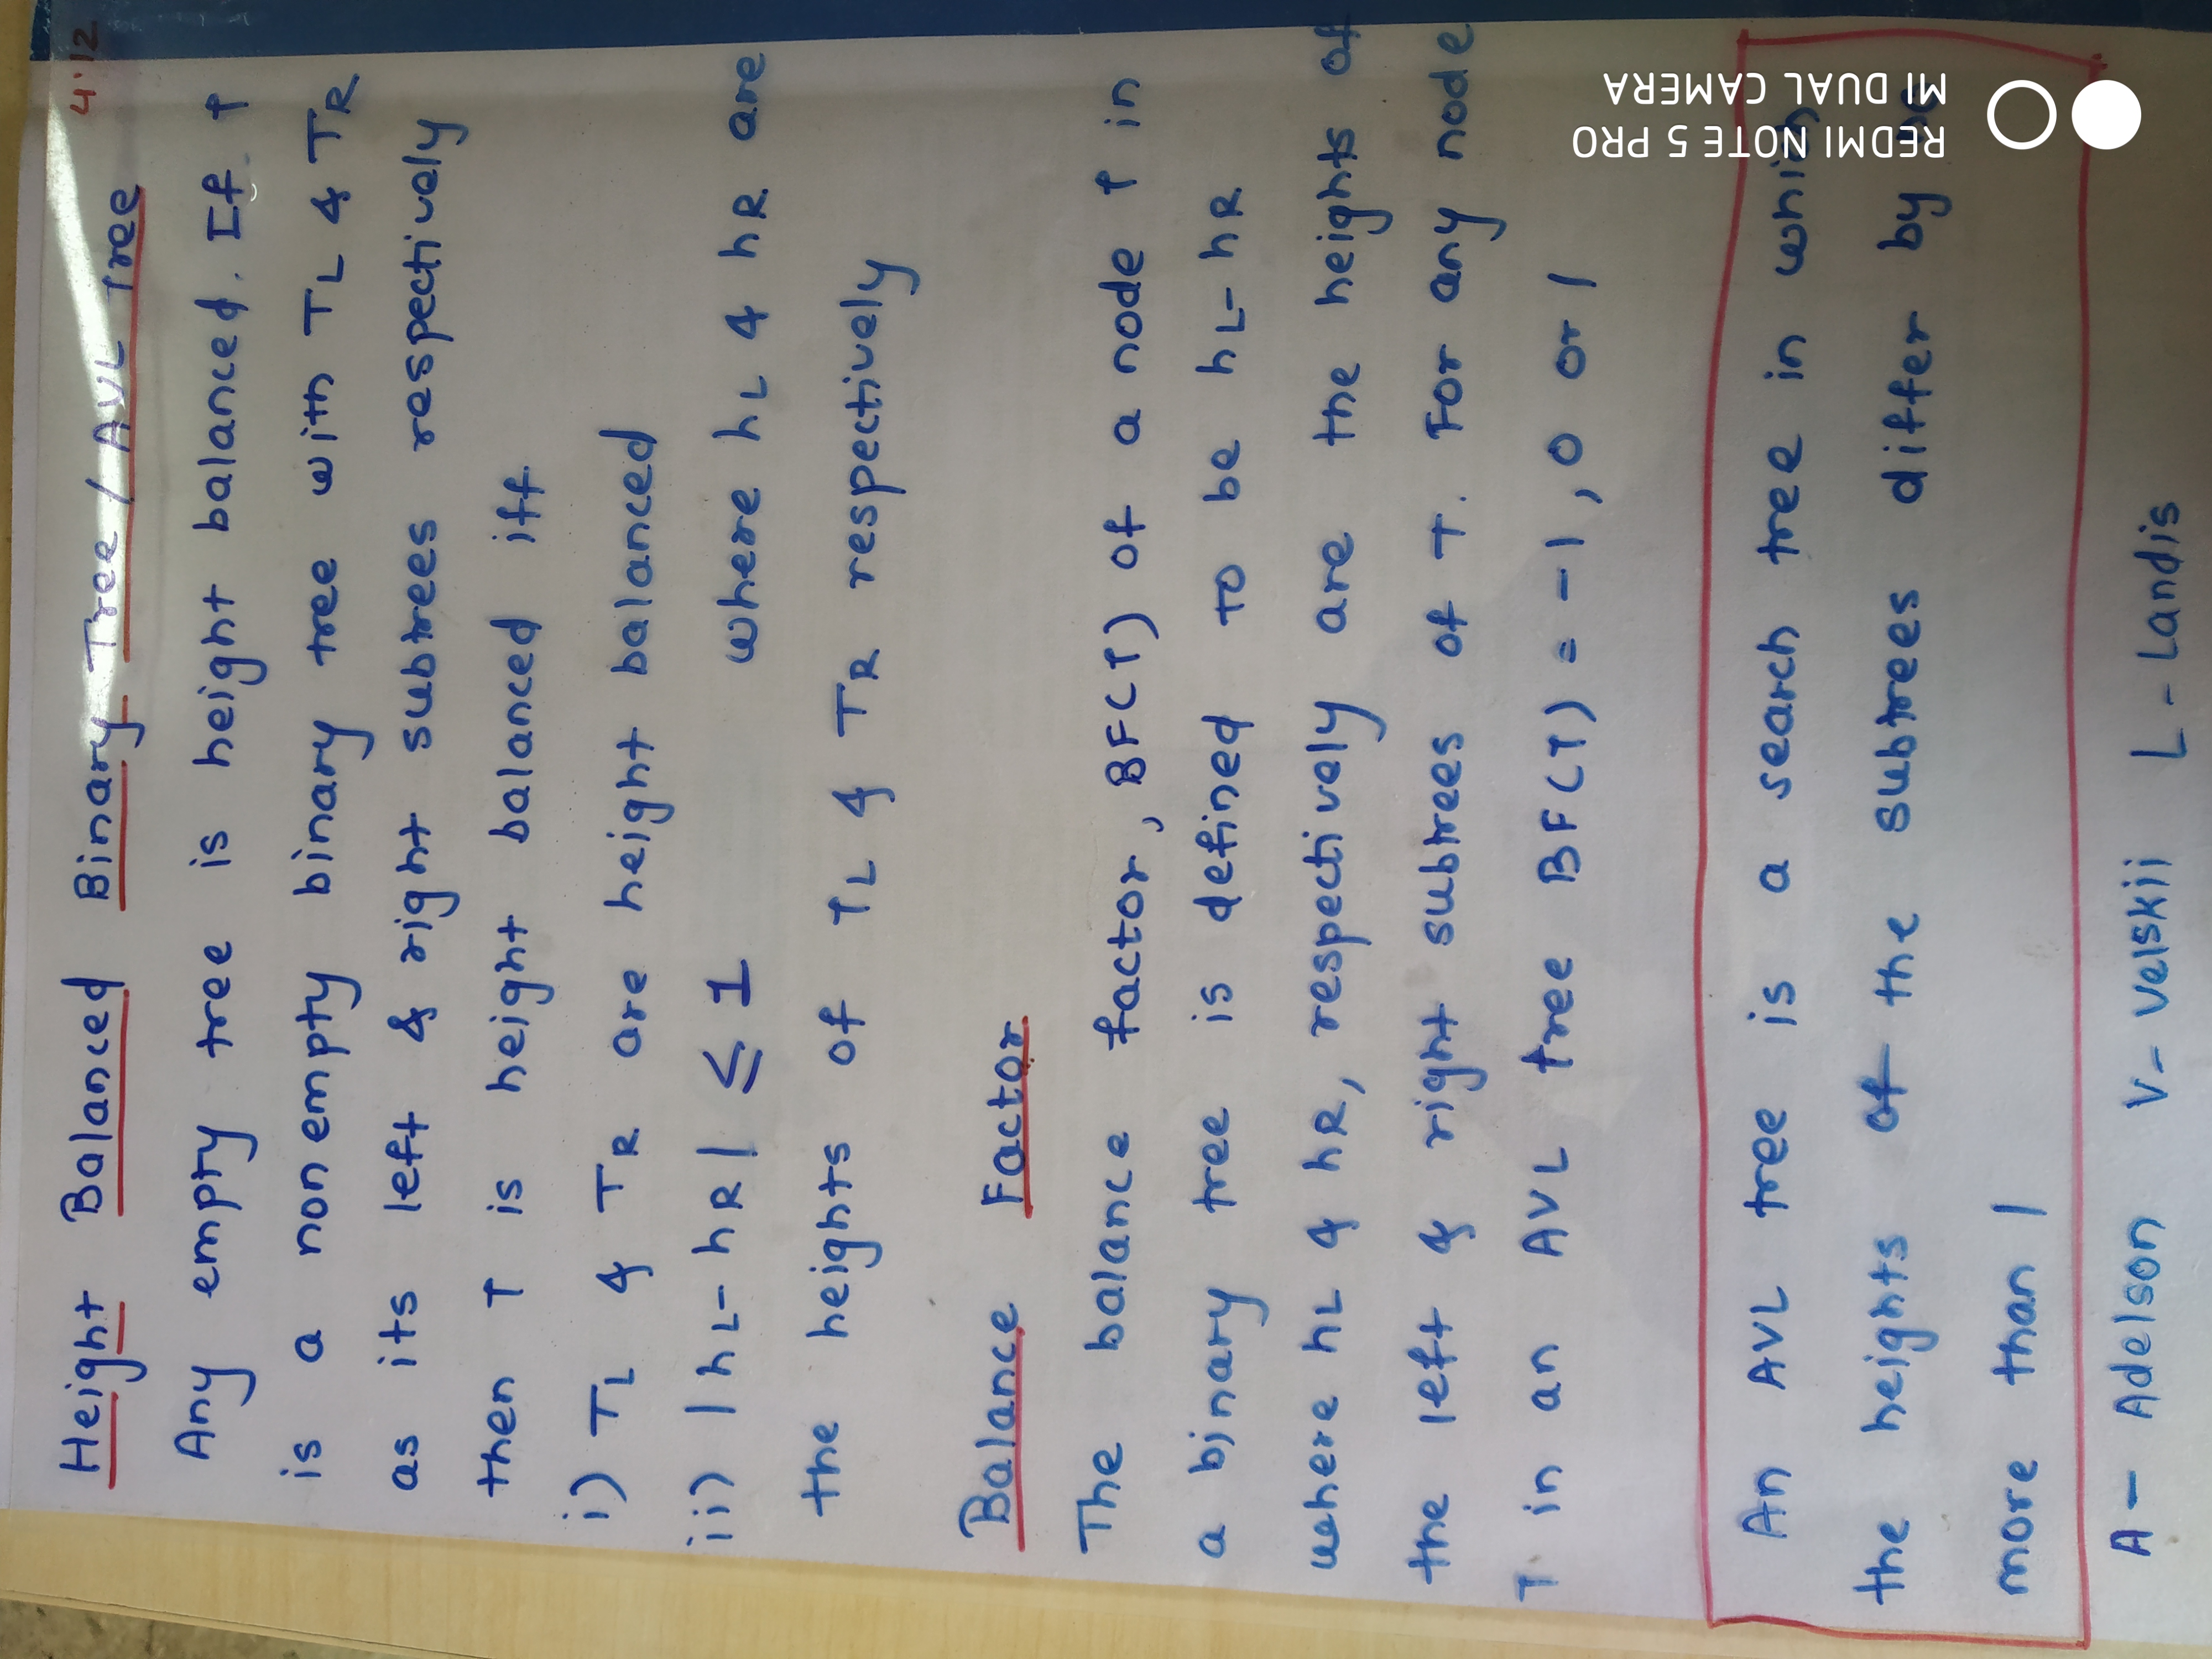 4.12
Height Balanced Binary Tree / AVL Tree
Any empty tree is height balanced. If T
is a non empty binary tree with TL & TR
as its left & right subtrees respectively
then T is height balanced iff
i) TL & TR are height balanced
ii) |hL-hR| ≤ 1 where hL & hR are
the heights of TL & TR respectively
Balance Factor
The balance factor, BF(T) of a node T in
a binary tree is defined to be hL-hR
where hL & hR, respectively are the heights of
the left & right subtrees of T. For any node
T in an AVL tree BF(T) = -1, 0 or 1
An AVL tree is a search tree in which
the heights of the subtrees differ by no
more than 1
A - Adelson V- Velskii L - Landis
REDMI NOTE 5 PRO
MI DUAL CAMERA